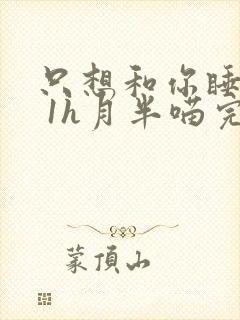 只想和你睡
1h月半喵完
蒙顶山